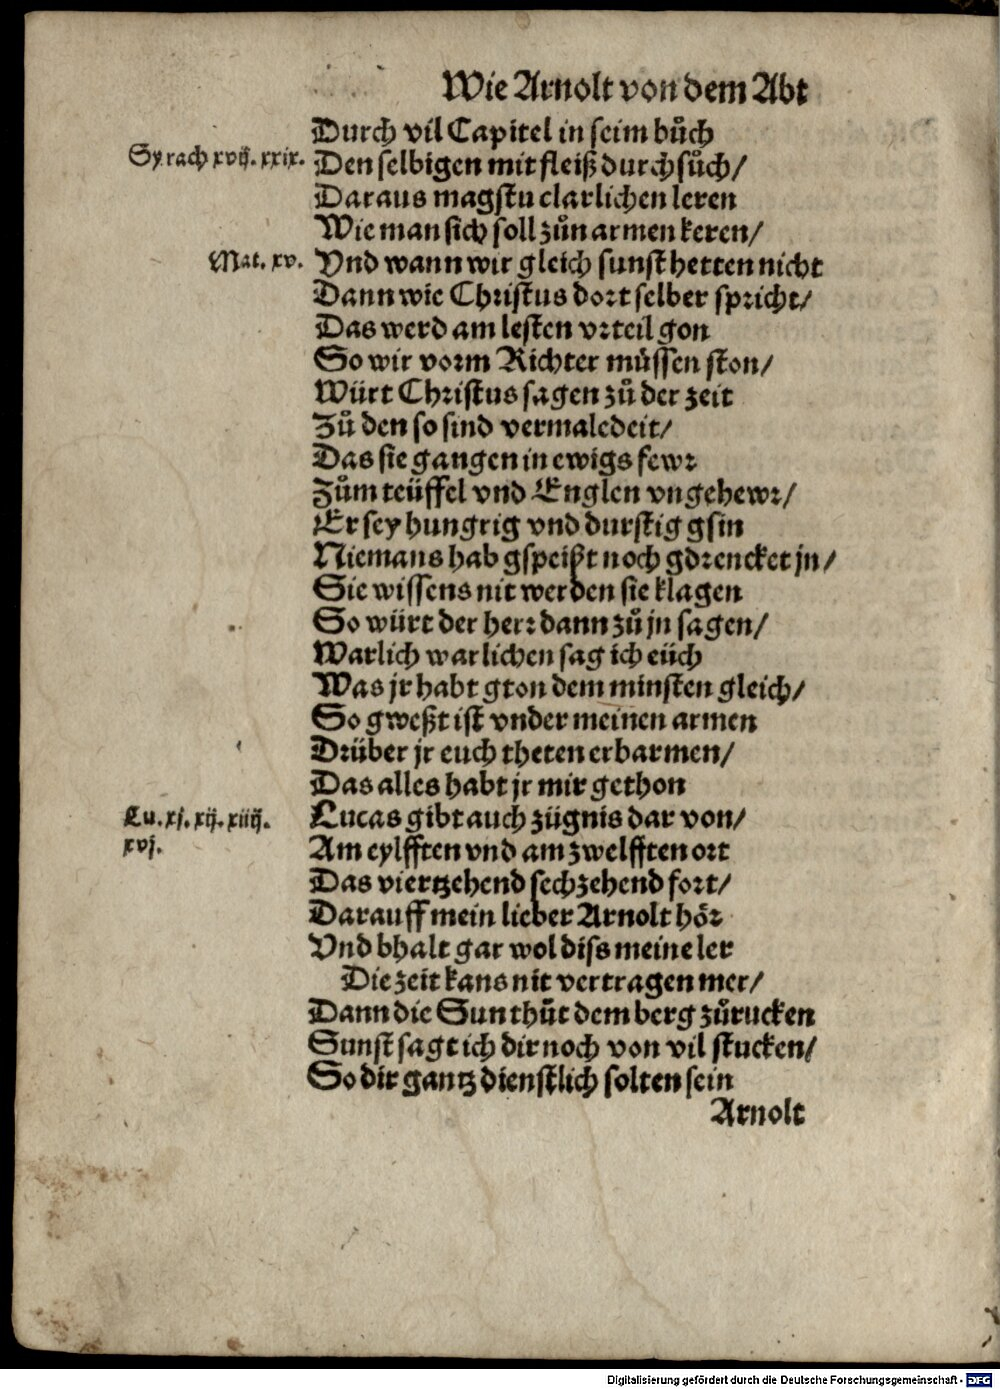 Wie Arnolt von dem Abt
Durch vil Capitel in seim bůch
Syrach xvij. xxix.
Den selbigen mit fleiß durchsůch/
Daraus magstu clarlichen leren
Wie man sich soll zůn armen keren/
Mat. xv.
Vnd wann wir gleich sunst hetten nicht
Dann wie Christus dort selber spricht/
Das werd am lesten vrteil gon
So wir vorm Richter müssen ston/
Würt Christus sagen zů der zeit
Zů den so sind vermaledeit/
Das sie gangen in ewigs fewr
Zům teüffel vnd Englen vngehewr/
Er sey hungrig vnd durstig gsin
Niemans hab gspeißt noch gdrencket jn/
Sie wissens nit werden sie klagen
So würt der herr dann zů jn sagen/
Warlich warlichen sag ich eüch
Was jr habt gton dem minsten gleich/
So gweßt ist vnder meinen armen
Drüber jr euch theten erbarmen/
Das alles habt jr mir gethon
Lu. xj. xij. xiiij.
xvj.
Lucas gibt auch zügnis dar von/
Am eylfften vnd am zwelfften ort
Das viertzehend sechzehend fort/
Darauff mein lieber Arnolt hör
Vnd bhalt gar wol diss meine ler
Die zeit kans nit vertragen mer/
Dann die Sun thůt dem berg zůrucken
Sunst sagt ich dir noch von vil stucken/
So dir gantz dienstlich solten sein
Arnolt
Digitalisierung gefördert durch die Deutsche Forschungsgemeinschaft - DFG